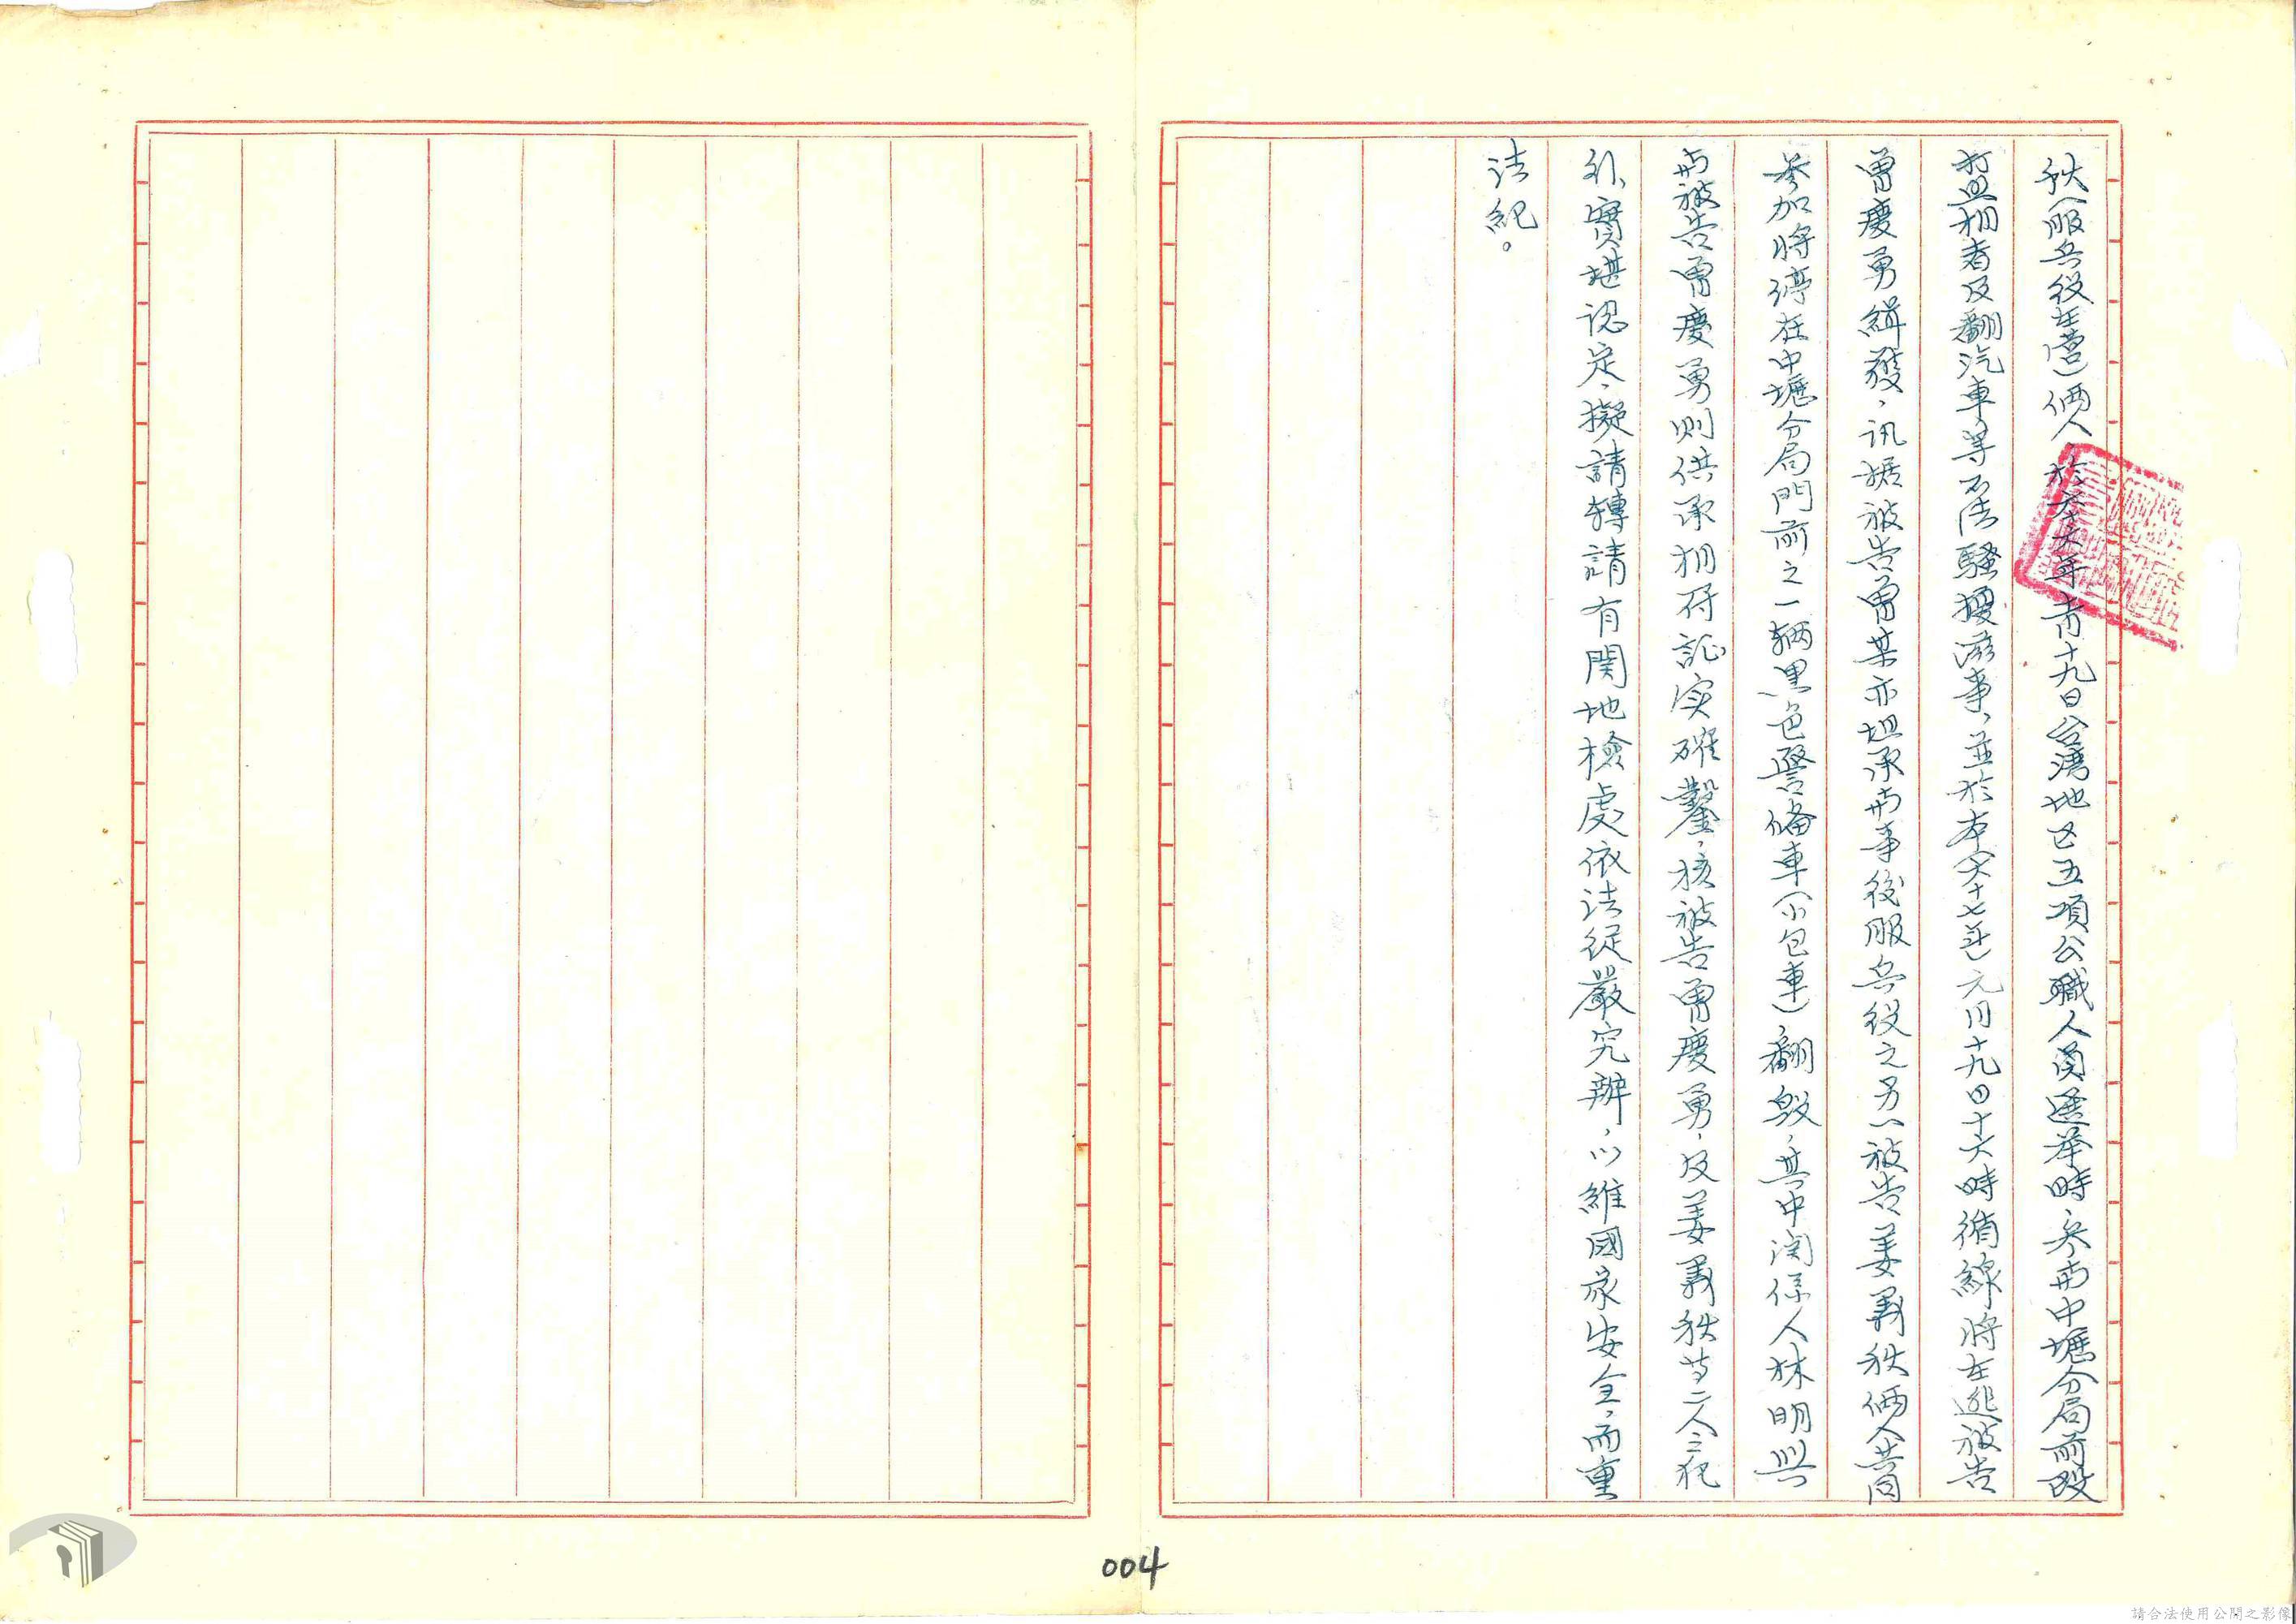 秩(服兵役在營)倆人,於六六年十一月十九日台湾地区五項公職人員選举時,矣于中壢分局前毆
打照相者及翻汽車等不法騷擾滋事,並於本(六十七年)元月十九日十六時循線將在逃被告
曾慶勇緝獲,訊據被告曾某亦坦承于事後服兵役之另一被告姜義秩倆人共同
參加將停在中壢分局門前之一輛黑色警備車(小包車)翻毀,其中関係人林明興
与被告曾慶勇則供承相符証实確鑿,核被告曾慶勇,及姜義秩等二人之犯
行,實堪認定,擬請轉請有関地檢處依法從嚴究辦,以維國家安全,而重
法紀。
004
請合法使用公開之影像